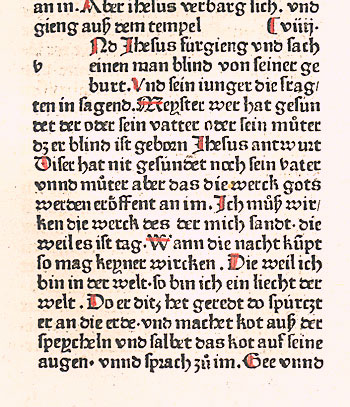 an in. Aber ihesus verbarg sich. vnd
gieng auß dem tempel C viiij.
Nd Jhesus fürgieng vnd sach
v einen man blind von seiner ge
burt. Vnd sein iunger die frag/
ten in sagend. Meyster wer hat gesun
det der oder sein vatter oder sein můter
dz er blind ist geborn Jhesus antwurt
Diser hat nit gesündet noch sein vater
vnnd můter aber das die werck gots
werden eröffent an im. Jch můß wir/
ken die werck des der mich sandt. die
weil es ist tag. Wann die nacht kūpt
so mag keyner wircken. Die weil ich
bin in der welt. so bin ich ein liecht der
welt. Do er ditz het geredt do spürtzt
er an die erde. vnd machet kot auß der
speycheln vnnd salbet das kot auf seine
augen. vnnd sprach zů im. Gee vnnd